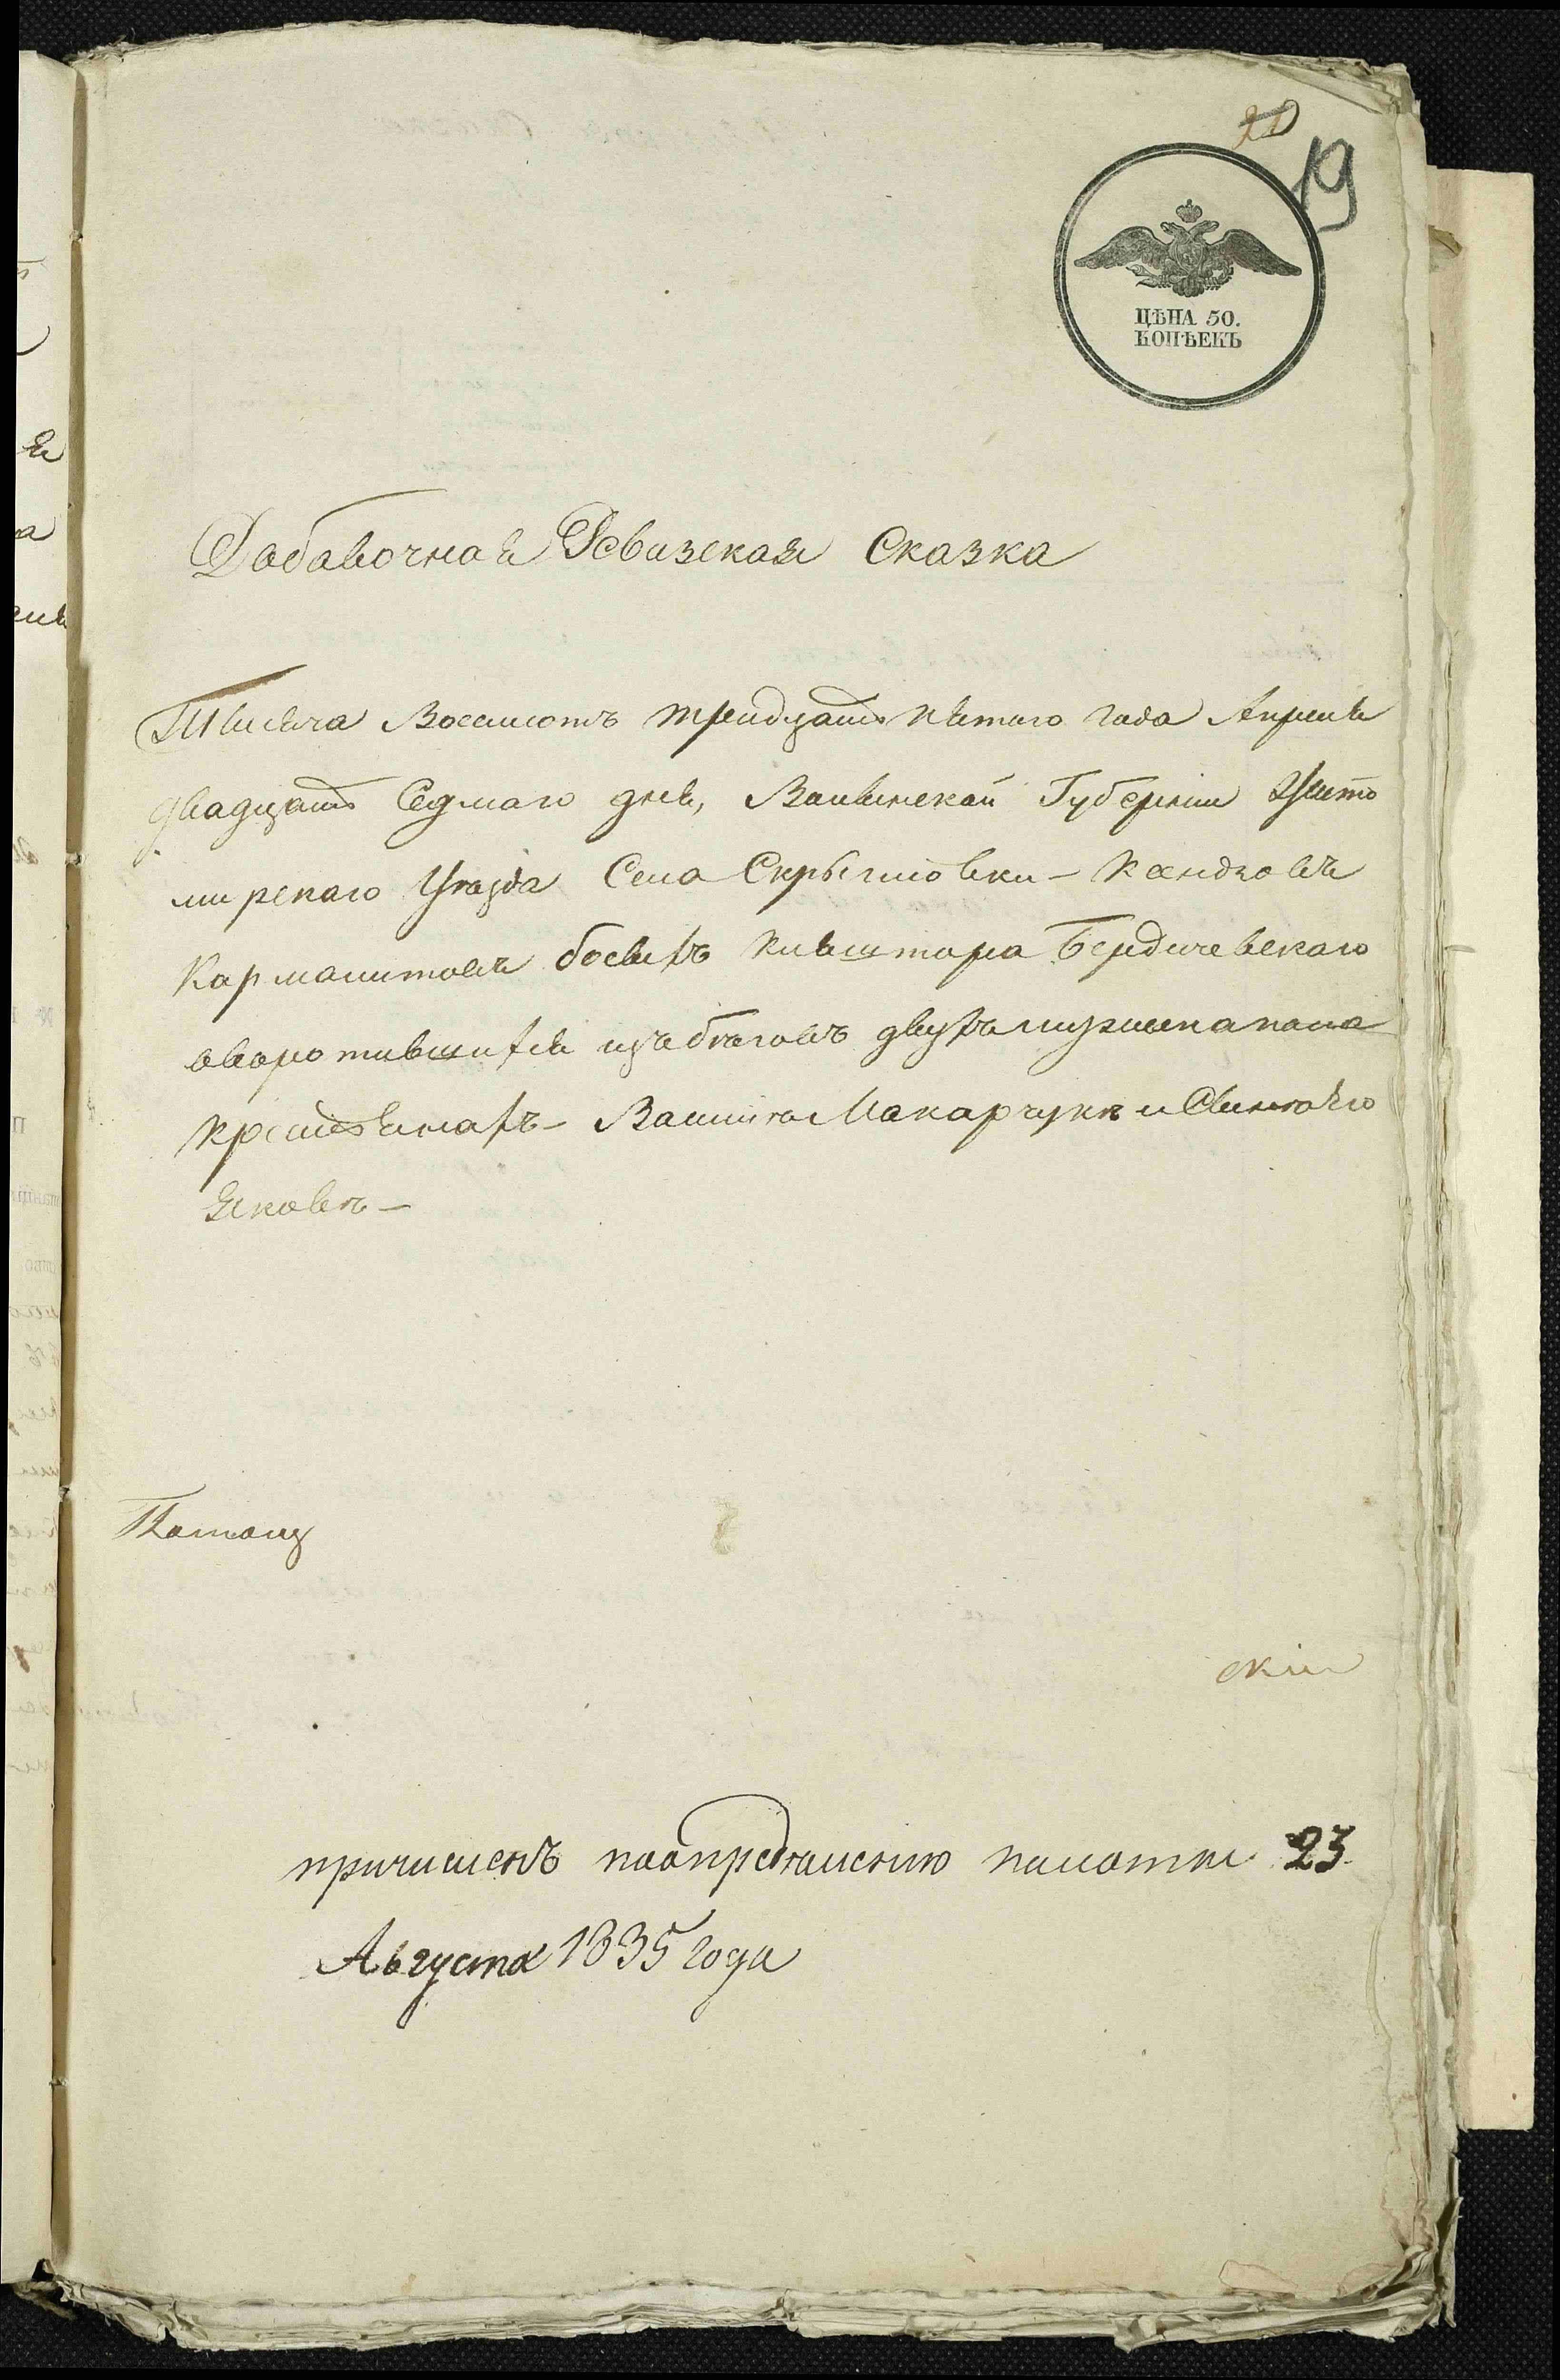 19
ЦѢНА 50.
КОПѢЕКЪ
Добавочная Ревизская Сказка
Тысяча Восемсотъ тридцать пятаго года Апреля
двадцать Седмаго дня, Волынской Губерніи Жито
мирскаго Уезда Села Скрыгловки - Ксендзовъ
Кармалитовъ босыхъ кляштора Бердичевскаго
овозвротившихся изъ бѣговъ двухъ мужска пола
крестьянахъ - Василю Макарчукѣ и
Яковѣ -
Потому
скіи
причисленъ поопредѣленію палаты 23
Августа 1835 года